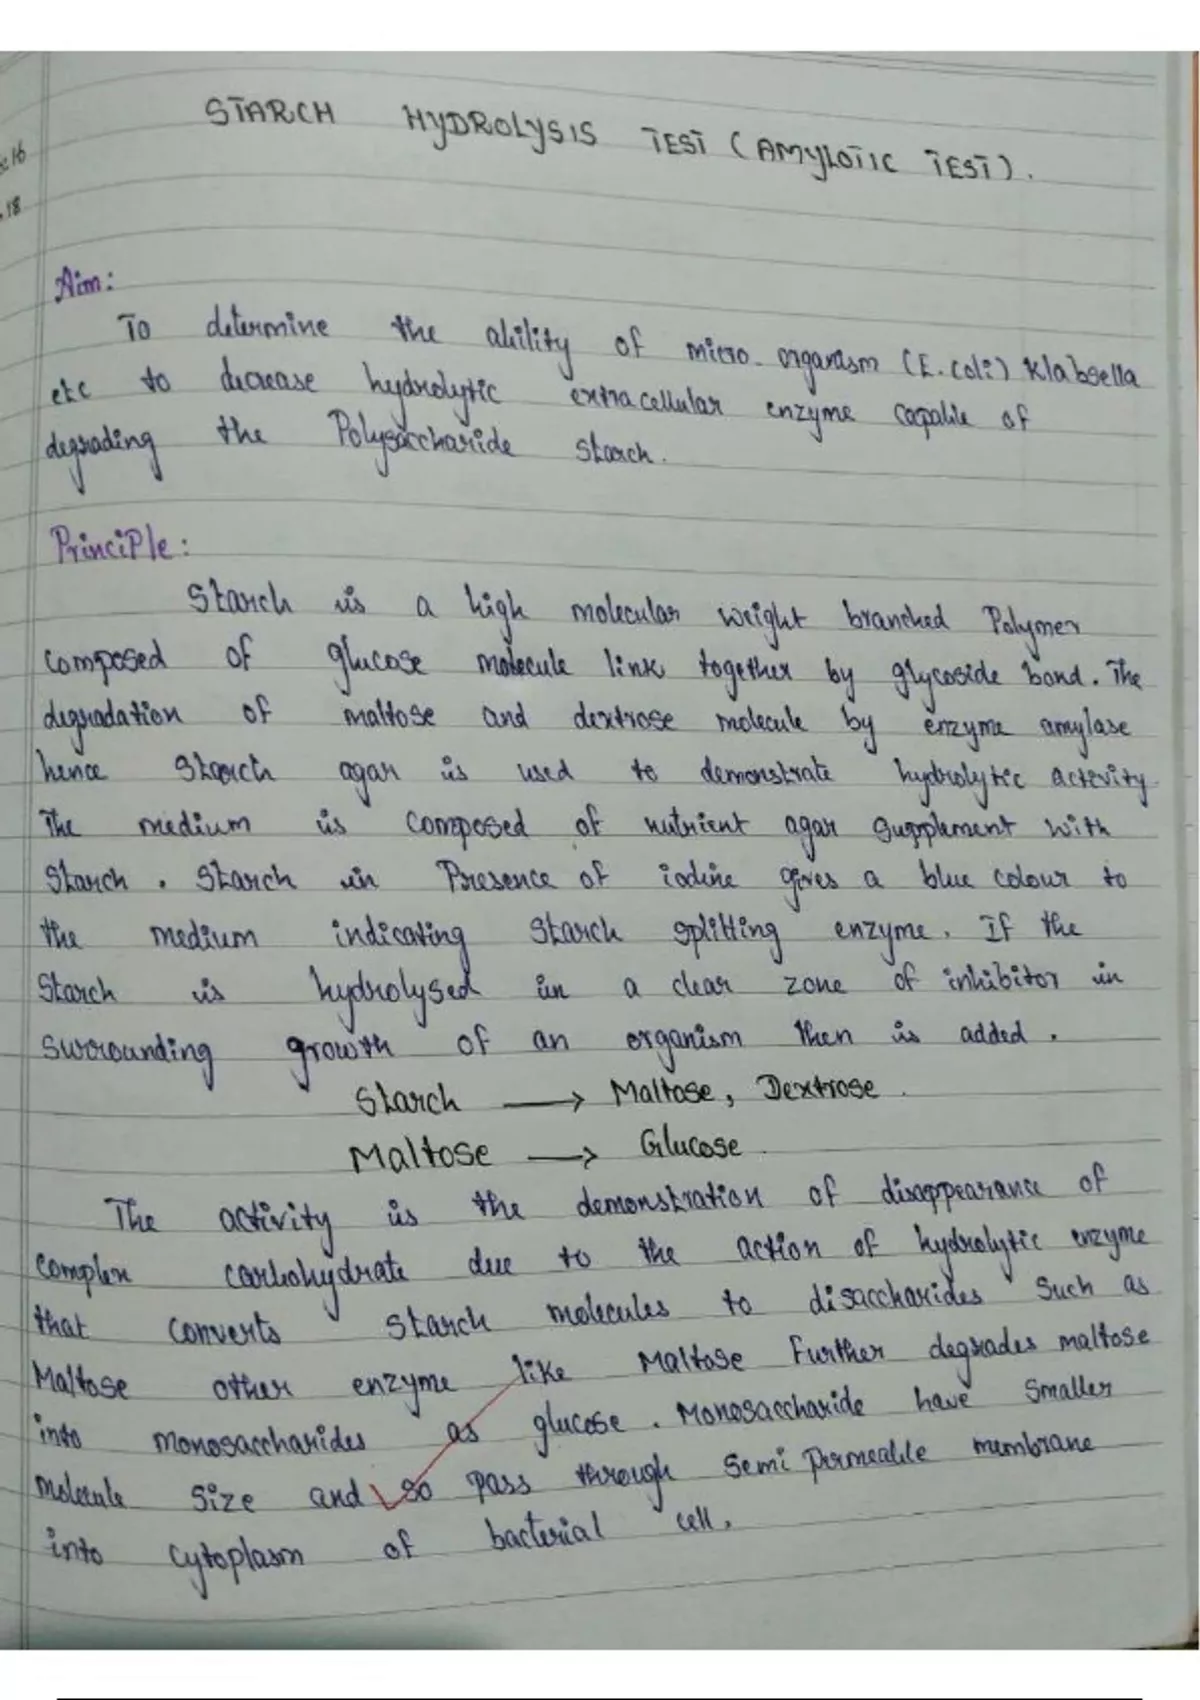 STARCH HYDROLYSIS TEST (AMYLOTIC TEST).
16
18
Aim:
To determine the ability of micro-organism (E. coli) Klabsella
etc to decrease hydrolytic extracellular enzyme capable of
degrading the Polysaccharide starch.
Principle:
Starch is a high molecular weight branched Polymer
composed of glucose molecule link together by glycoside bond. The
degradation of maltose and dextrose molecule by enzyme amylase
hence starch agar is used to demonstrate hydrolytic activity.
The medium is composed of nutrient agar supplement with
starch. Starch in Presence of iodine gives a blue colour to
the medium indicating starch splitting enzyme. If the
starch is hydrolysed in a clear zone of inhibitor in
surrounding growth of an organism then is added.
Starch → Maltose, Dextrose.
Maltose → Glucose.
The activity is the demonstration of disappearance of
complex carbohydrate due to the action of hydrolytic enzyme
that converts starch molecules to disaccharides such as
Maltose other enzyme like Maltose Further degrades maltose
into monosaccharides as glucose. Monosaccharide have smaller
molecule size and so pass through semi permeable membrane
into cytoplasm of bacterial cell.